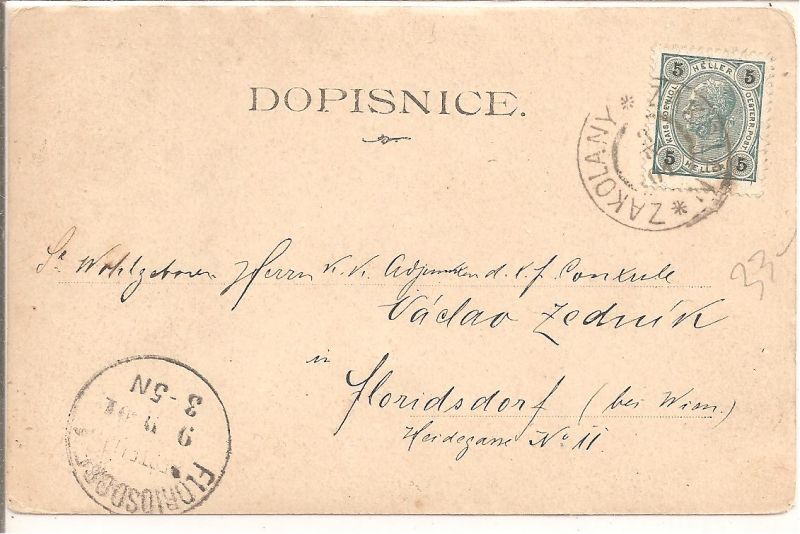 DOPISNICE.
5 HELLER 5
KAIS. KOENIGL. OESTERR. POST.
5 HELLER 5
* ZAKOLANY *
Sr. Wohlgeboren Herrn K. K. Adjunkten d. k. f.
Václav Zedník
in
Floridsdorf (bei Wien.)
Heidegasse No 11
33-
3-5N
9
FLORIDSDORF